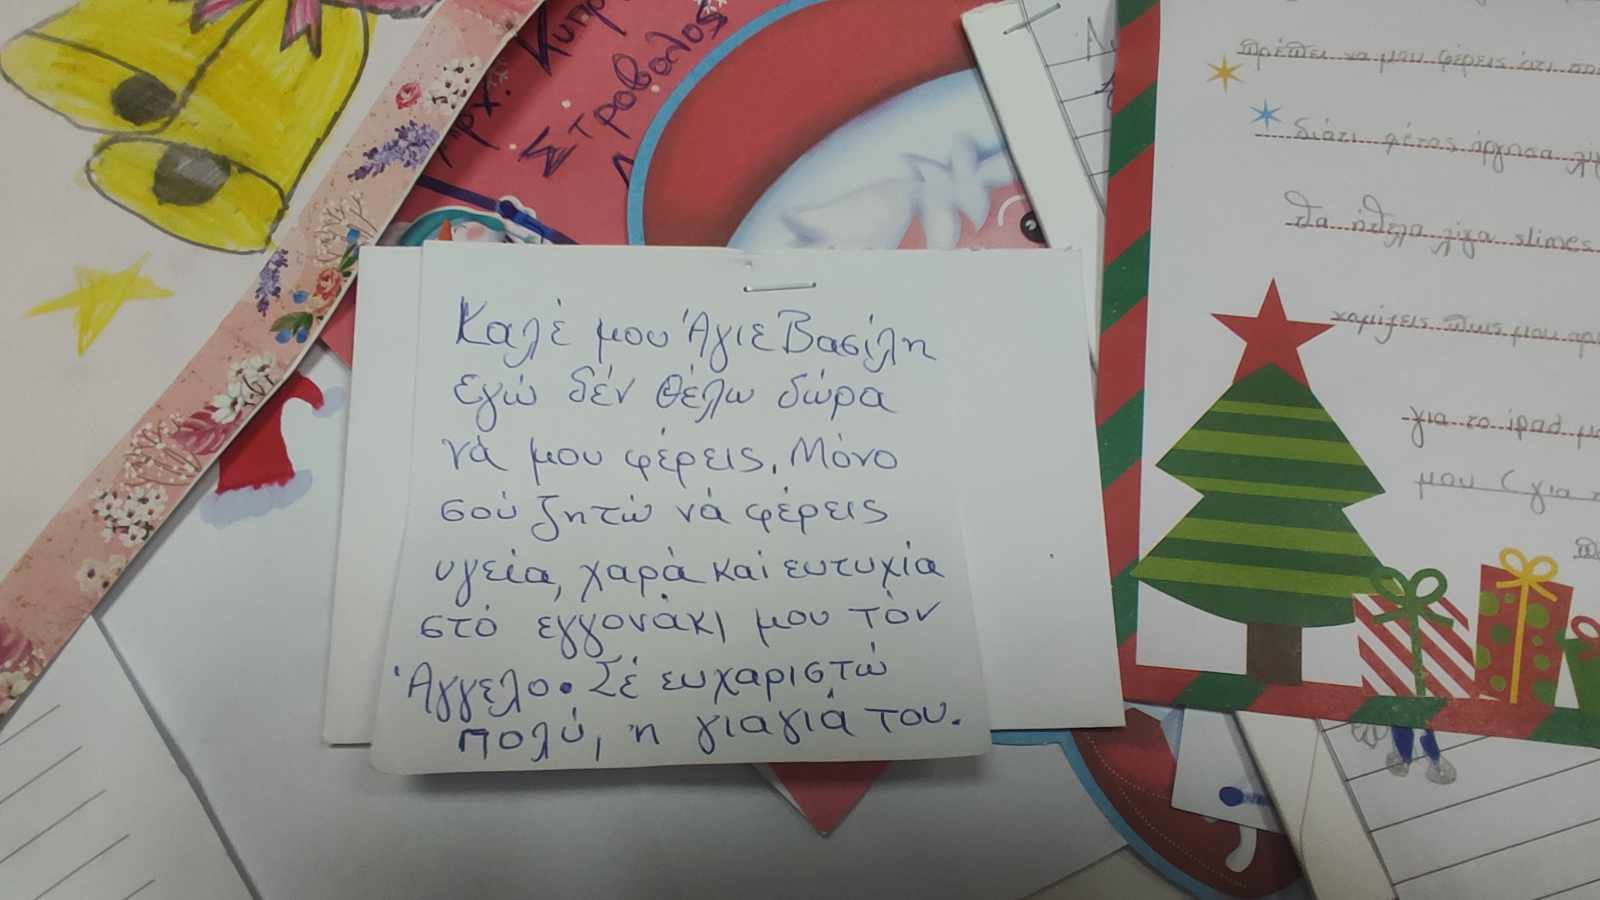 Κυπρ
Αρχ.
Στροβολος
Καλέ μου Άγιε Βασίλη
εγώ δέν θέλω δώρα
νά μου φέρεις. Μόνο
σού ζητώ νά φέρεις
υγεία, χαρά και ευτυχία
στό εγγονάκι μου τόν
Άγγελο. Σέ ευχαριστώ
πολύ, η γιαγιά του.
πρέπει να μου φέρεις ότι
διότι φέτος άργησα
θα ήθελα λίγα slimes
νομίζεις πως μου
για το ipad
μου (για